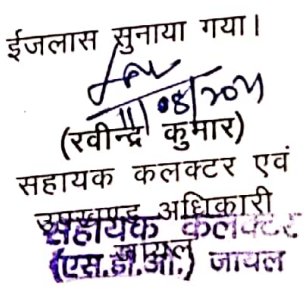 ईजलास सुनाया गया।
11/08/2021
(रवीन्द्र कुमार)
सहायक कलक्टर एवं
उपखण्ड अधिकारी
जायल
सहायक कलक्टर
(एस.डी.ओ.) जायल